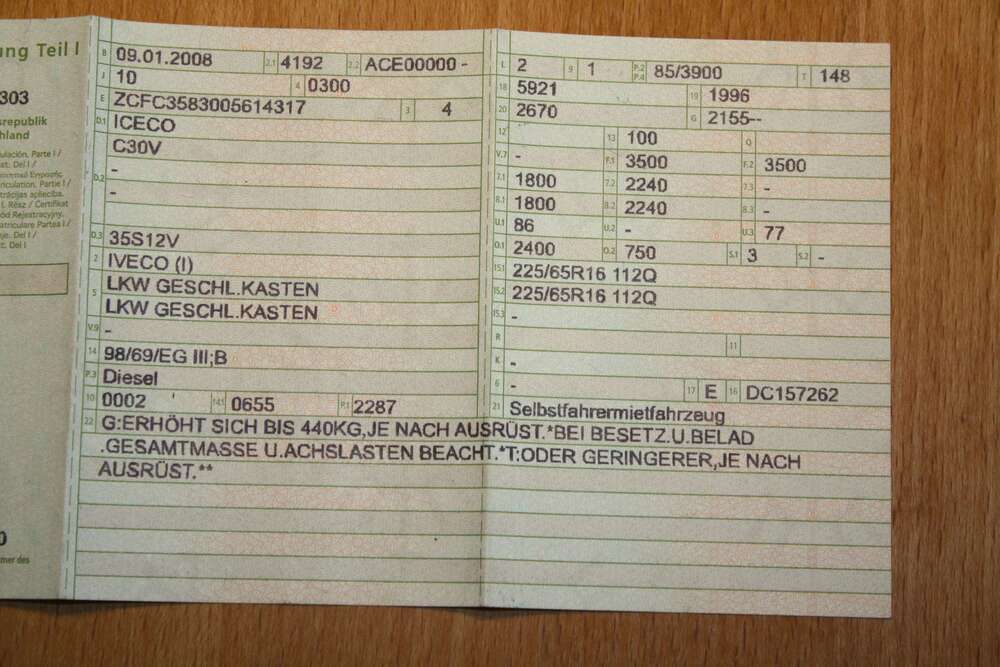 ung Teil I
303
srepublik
hland
ulación. Parte I /
st. Del I /
riculation. Parte I /
I. Rész / Certifikat
ód Rejestracyjny.
atriculare Partea I /
je. Del I /
t. Del I
0
mer des
B 09.01.2008 2.1 4192 2.2 ACE00000 -
J 10 4 0300
E ZCFC3583005614317 3 4
D.1 ICECO
C30V
D.2 -
-
D.3 35S12V
2 IVECO (I)
5 LKW GESCHL.KASTEN
LKW GESCHL.KASTEN
V.9 -
14 98/69/EG III;B
P.3 Diesel
10 0002 14.1 0655 P.1 2287
L 2 9 1 P.2 P.4 85/3900 T 148
18 5921 19 1996
20 2670 G 2155--
12 13 100 Q
V.7 - F.1 3500 F.2 3500
7.1 1800 7.2 2240 7.3 -
8.1 1800 8.2 2240 8.3 -
U.1 86 U.2 - U.3 77
O.1 2400 O.2 750 S.1 3 S.2 -
15.1 225/65R16 112Q
15.2 225/65R16 112Q
15.3 -
R 11
K -
6 - 17 E 16 DC157262
21 Selbstfahrermietfahrzeug
22 G:ERHÖHT SICH BIS 440KG,JE NACH AUSRÜST.*BEI BESETZ.U.BELAD
.GESAMTMASSE U.ACHSLASTEN BEACHT.*T:ODER GERINGERER,JE NACH
AUSRÜST.**